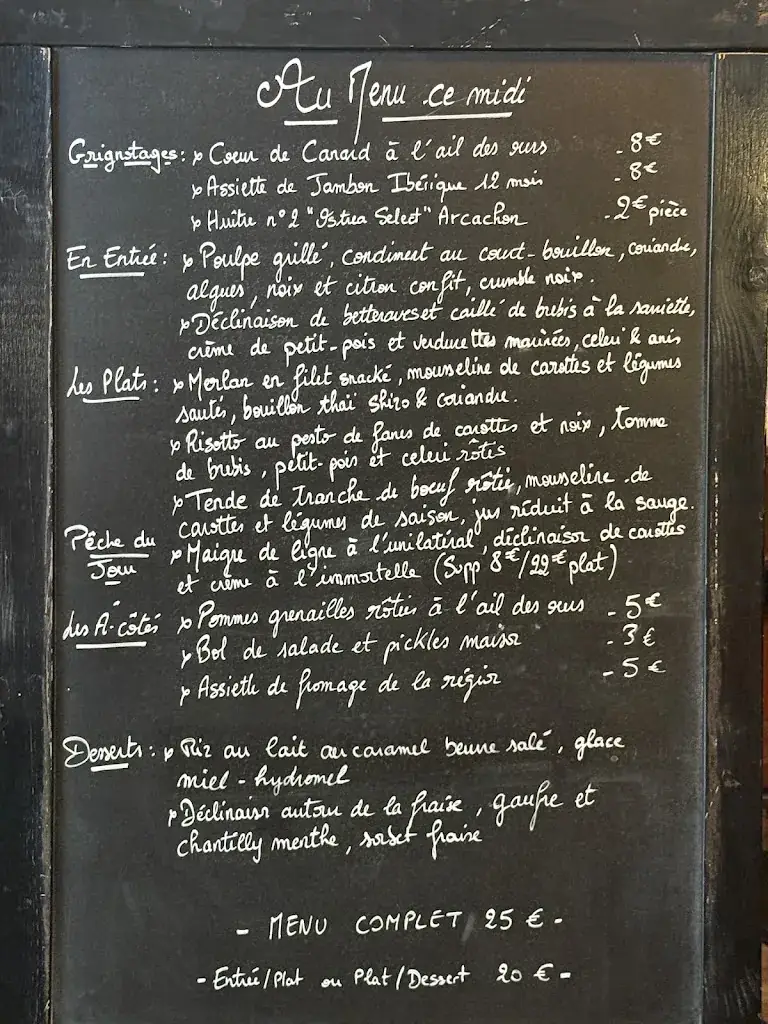 Au Menu ce midi
Grignotages : Coeur de Canard à l'ail des ours - 8€
Assiette de Jambon Ibérique 12 mois - 8€
Huître n°2 "Ostrea Select" Arcachon - 2€ pièce
En Entrée : Poulpe grillé, condiment au court-bouillon, coriandre,
algues, noix et citron confit, crumble noix.
Déclinaison de betteraves et caillé de brebis à la sarriette,
crème de petit-pois et verdurettes marinées, celeri & anis
Les Plats : Merlan en filet snacké, mousseline de carottes et légumes
sautés, bouillon thaï shizo & coriandre.
Risotto au pesto de fanes de carottes et noix, tomme
de brebis, petit-pois et celeri rôtis
Tende de Tranche de boeuf rôtie, mousseline de
carottes et légumes de saison, jus réduit à la sauge.
Pêche du Maigre de ligne à l'unilatéral, déclinaison de carottes
Jour et crème à l'immortelle (Supp 8€/22€ plat)
Les À-côtés Pommes grenailles rôties à l'ail des ours - 5€
Bol de salade et pickles maison - 3€
Assiette de fromage de la région - 5€
Desserts : Riz au lait au caramel beurre salé, glace
miel - hydromel
Déclinaison autour de la fraise, gaufre et
chantilly menthe, sorbet fraise
- MENU COMPLET 25 € -
- Entrée/Plat ou Plat/Dessert 20 € -